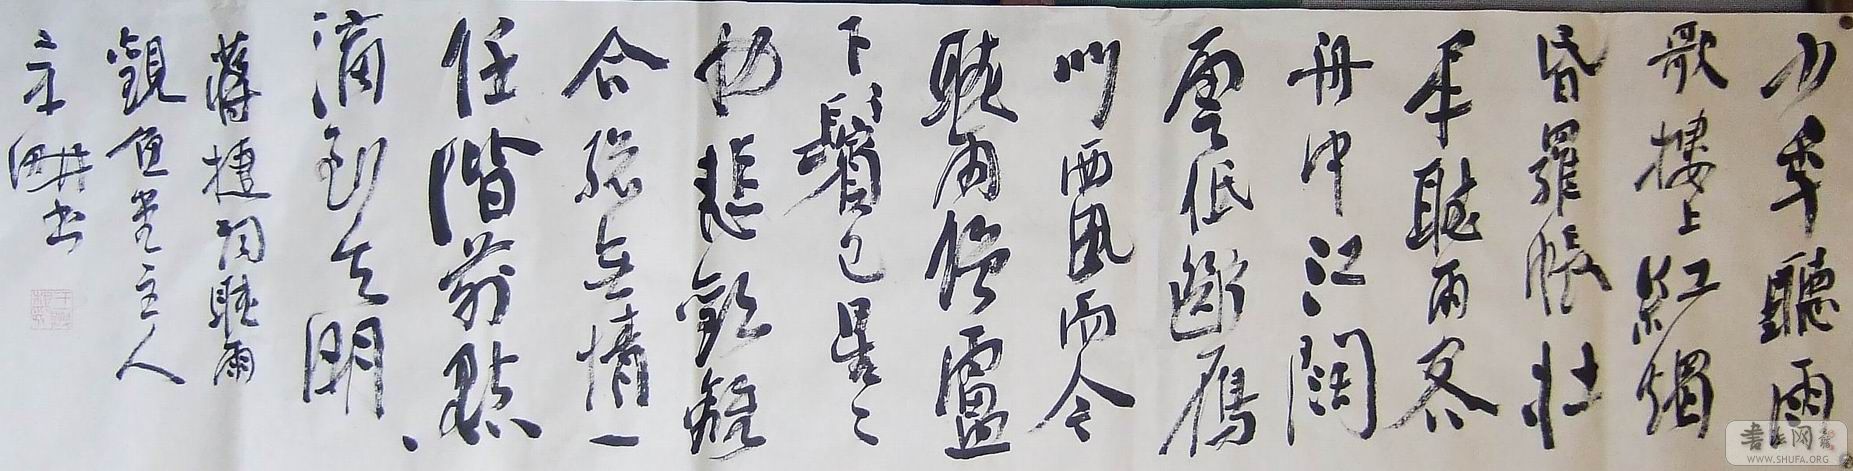 少年聽雨
歌樓上紅燭
昏羅帳壯
年聽雨客
舟中江闊
雲低斷雁
叫西風而今
聽雨僧廬
下鬢已星〻
也悲歡離
合總無情一
任階前點
滴到天明
蔣捷詞聽雨
觀魚堂主人
畊書
书法网
WWW.SHUFA.ORG